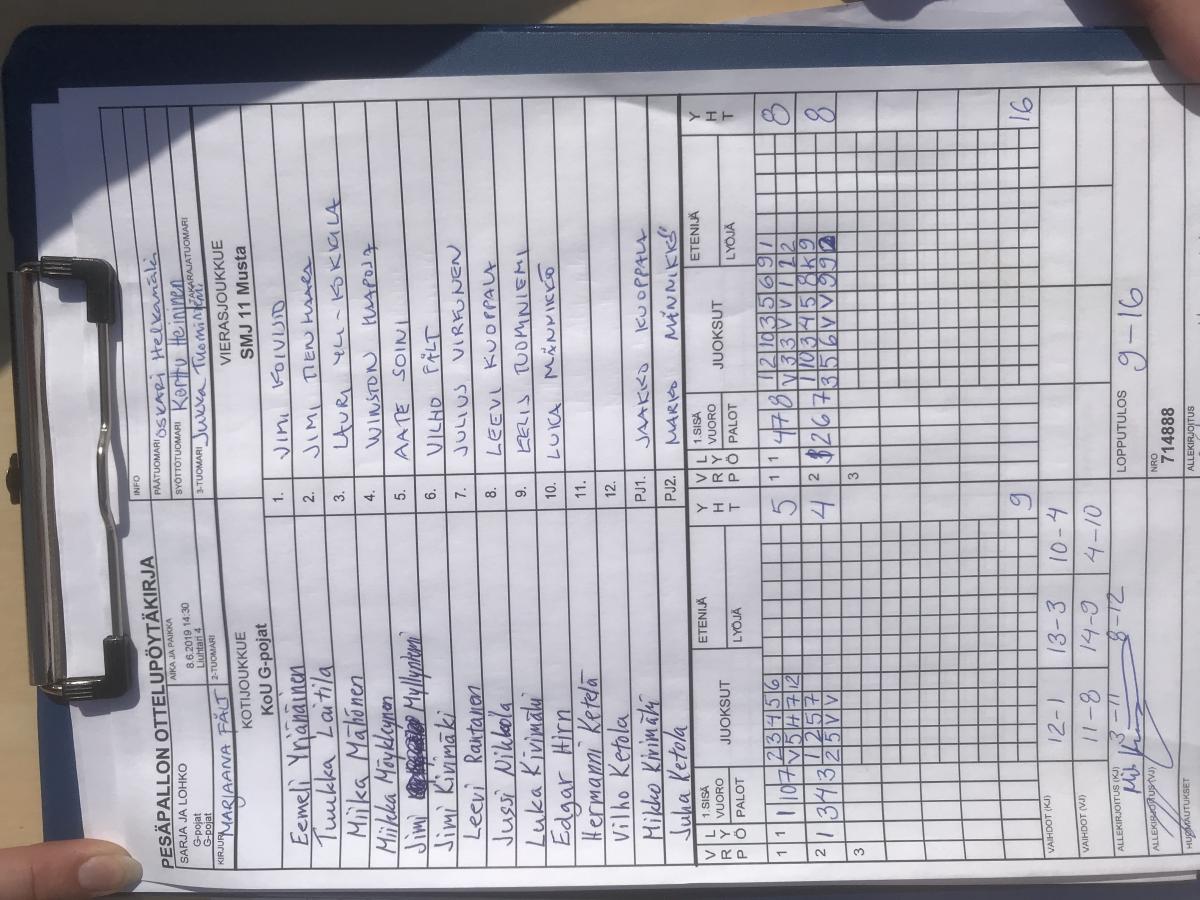 PESÄPALLON OTTELUPÖYTÄKIRJA
SARJA JA LOHKO
G-pojat
G-pojat
AIKA JA PAIKKA
8.6.2019 14:30
Liuhtari 4
INFO
PÄÄTUOMARI OSKARI Helkamäki
SYÖTTÖTUOMARI Karttu Heininen
KIRJURI MARJAANA FÄLT
2-TUOMARI
3-TUOMARI Jukka Tuominiemi
TAKARAJATUOMARI
KOTIJOUKKUE
KoU G-pojat
VIERASJOUKKUE
SMJ 11 Musta
Eemeli Ynänäinen 1. JIMI KOIVISTO
Tuukka Laitila 2. JIMI TIENHAARA
Miika Mähönen 3. LAURI YLI-KOKKILA
Miikka Mörkkynen 4. WINSTON HAAPOJA
Jimi Myllyniemi 5. AATE SOINI
Jimi Kivimäki 6. VILHO FÄLT
Leevi Rantanen 7. JULIUS VIRKUNEN
Jussi Nikkola 8. LEEVI KUOPPALA
Luka Kivimäki 9. EELIS TUOMINIEMI
Edgar Hirn 10. LUKA MÄNNIKKÖ
Hermanni Ketelä 11.
Vilho Ketola 12.
Mikko Kivimäki PJ1. JAAKKO KUOPPALA
Juha Ketola PJ2. MARKO MÄNNIKKÖ
V R P L Y Ö 1.SISÄ VUORO PALOT JUOKSUT ETENIJÄ LYÖJÄ Y H T
V R P L Y Ö 1.SISÄ VUORO PALOT JUOKSUT ETENIJÄ LYÖJÄ Y H T
1 1 1 10 7 2 3 4 5 6 5
V 5 4 7 12
1 1 4 7 8 1 2 10 3 5 6 9 1 8
V 1 3 3 V V 1 2 2
2 1 3 4 3 1 2 5 7 4
2 5 V V
2 2 6 7 1 10 3 4 5 8 K 9 8
3 5 6 V V 9 9
3
3
9
16
VAIHDOT (KJ) 12-1 13-3 10-4
VAIHDOT (VJ) 11-8 14-9 4-10
3-11 8-12
ALLEKIRJOITUS (KJ)
LOPPUTULOS 9-16
ALLEKIRJOITUS (VJ)
NRO
714888
HUOMAUTUKSET
ALLEKIRJOITUS